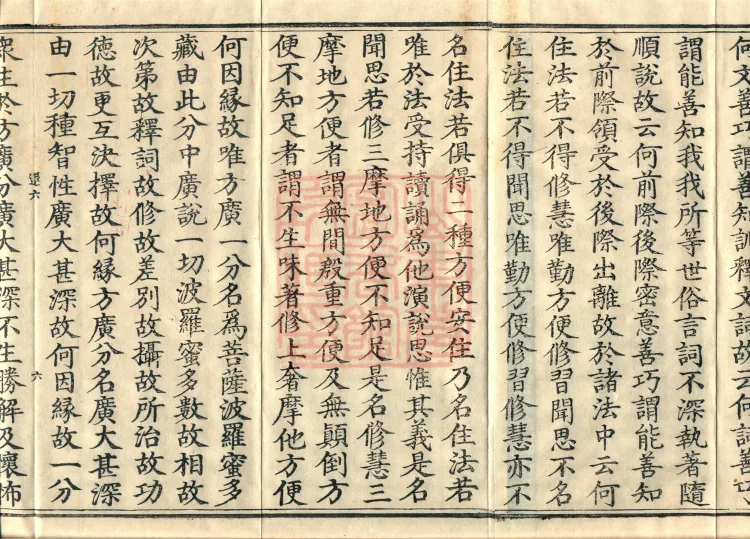 何文善巧謂善知訓釋文詞故云何言善巧
謂能善知我我所等世俗言詞不深執著隨
順說故云何前際後際密意善巧謂能善知
於前際領受於後際出離故於諸法中云何
住法若不得修慧唯勤方便修習聞思不名
住法若不得聞思唯勤方便修習修慧亦不
名住法若俱得二種方便安住乃名住法若
唯於法受持讀誦爲他演說思惟其義是名
聞思若修三摩地方便不知足是名修慧三
摩地方便者謂無間殷重方便及無顚倒方
便不知足者謂不生味著修上奢摩他方便
何因緣故唯方廣一分名爲菩薩波羅蜜多
藏由此分中廣說一切波羅蜜多數故相故
次第故釋詞故修故差別故攝故所治故功
德故更互決擇故何緣方廣分名廣大甚深
由一切種智性廣大甚深故何因緣故一分
眾生於方廣分廣大甚深不生勝解反懷怖
六